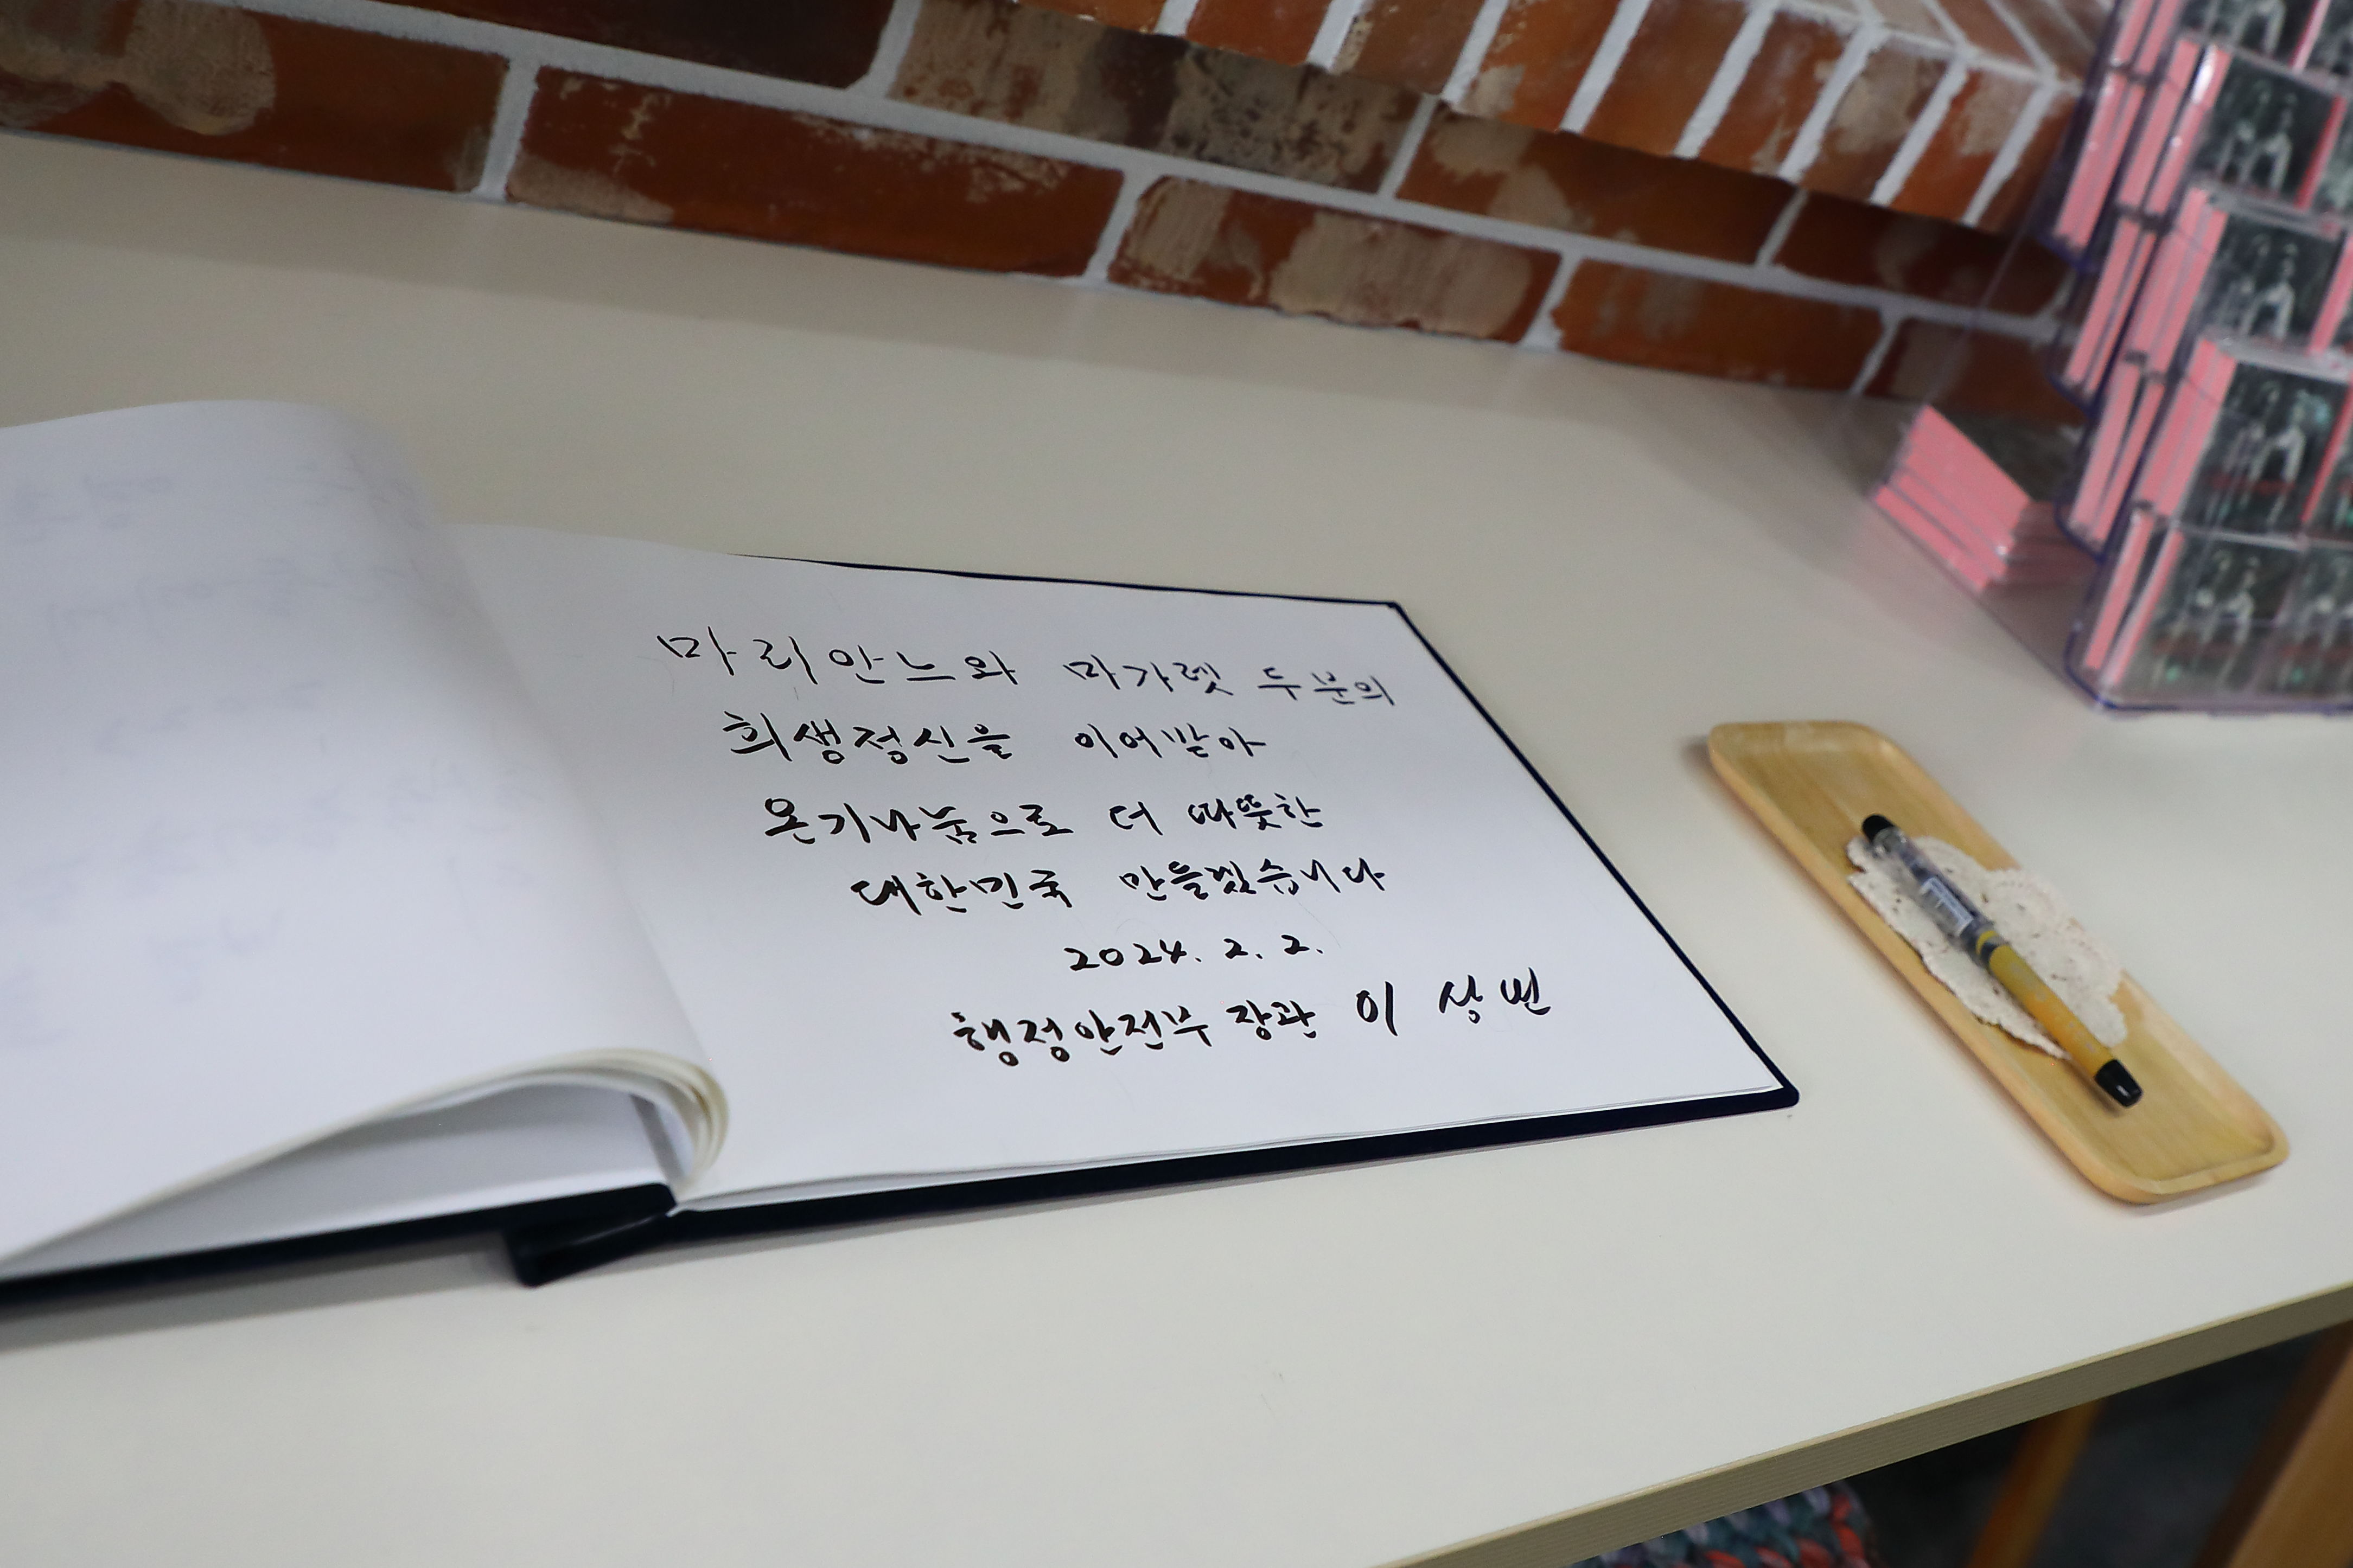 마리안느와 마가렛 두분의
희생정신을 이어받아
온기나눔으로 더 따뜻한
대한민국 만들겠습니다
2024. 2. 2.
행정안전부 장관 이 상 민